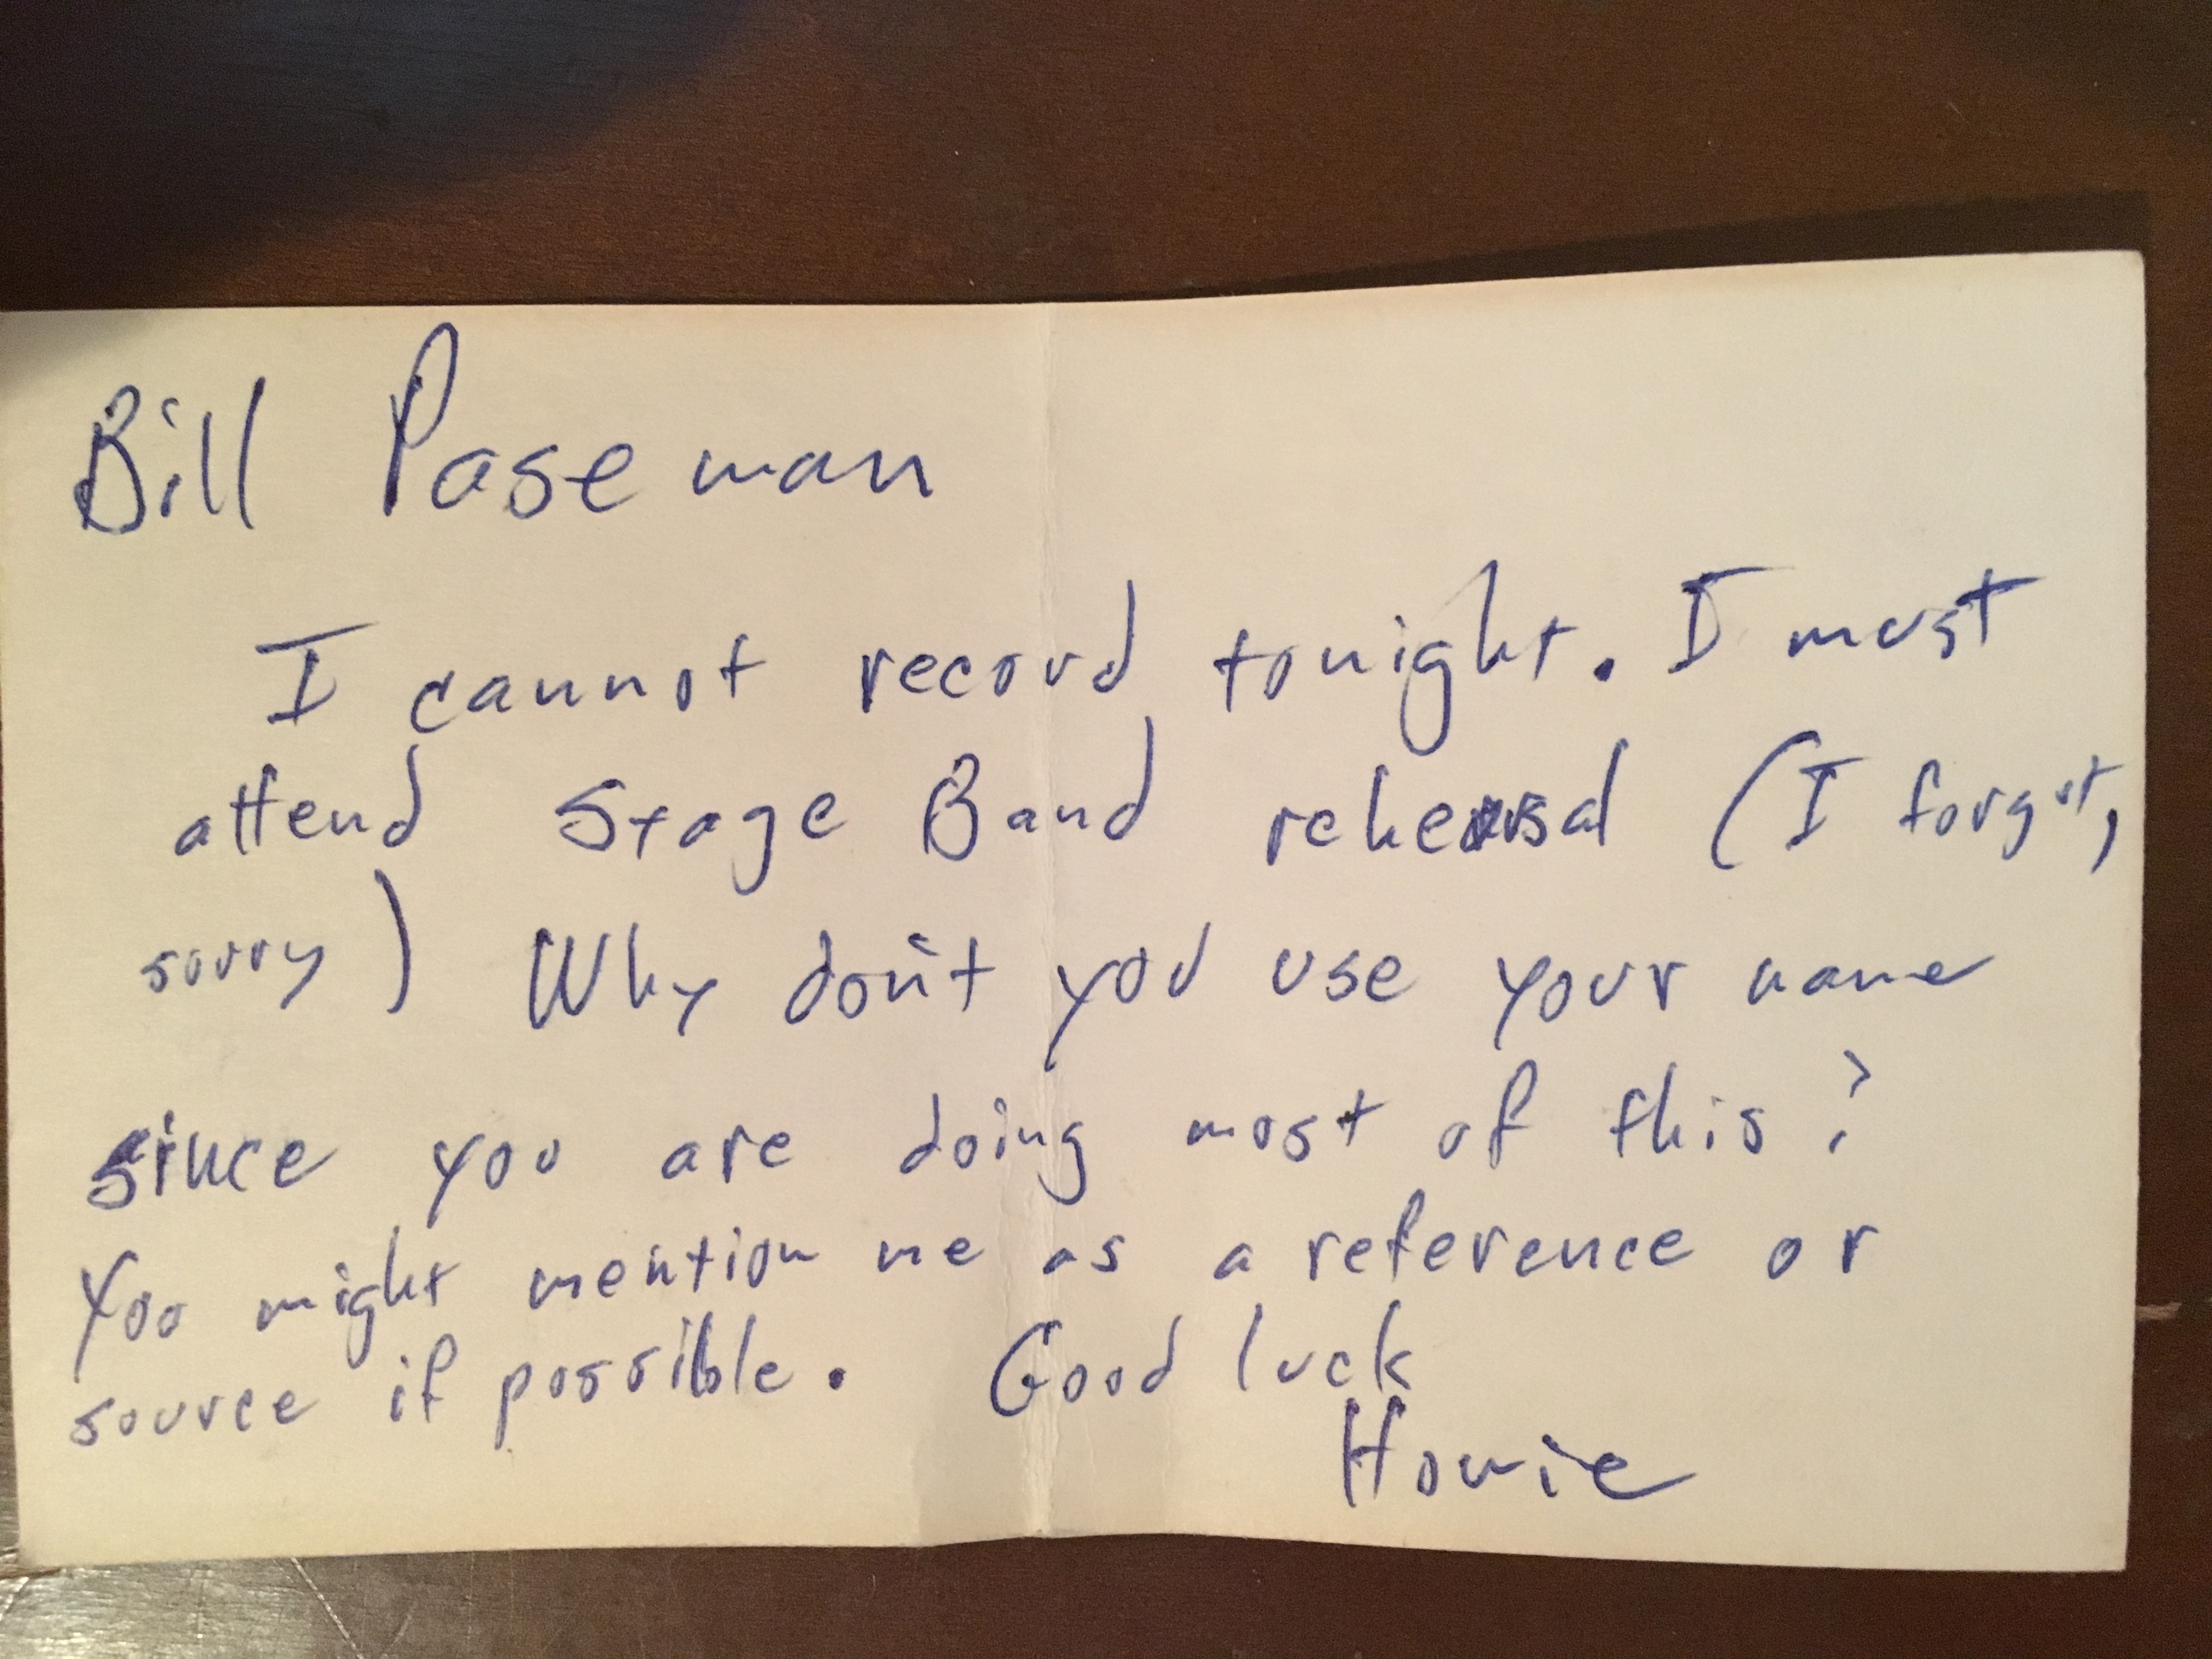 Bill Paseman
I cannot record tonight. I must
attend Stage Band rehersal (I forgot,
sorry) Why don't you use your name
since you are doing most of this?
You might mention me as a reference or
source if possible. Good luck
Howie